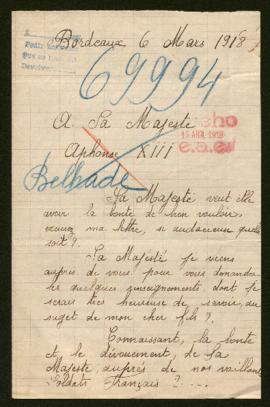 Bordeaux 6 Mars 1918
69994
A Sa Majesté
Alphonse XIII
15 ABR. 1918
Belbade
Sa Majesté veut elle
avoir la bonté de bien vouloir
ma lettre, si audacieuse quelle
soit?.
Sa Majésté je viens
auprès de vous pour vous demander
les quelques renseignements dont je
serais très heureuse de savoir, au
sujet de mon cher fils?.
Connaissant, sa bonté
et le dévouement, de Sa
Majesté auprès de nos vaillants
Soldats Français?....